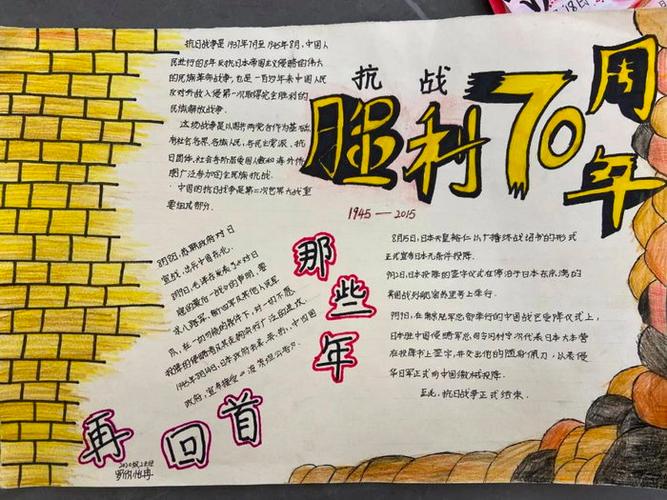 抗战
胜利70周年
1945—2015
抗日战争是1937年7月至1945年8月,中国人
民进行的8年反抗日本帝国主义侵略的伟大
的民族革命战争,也是一百多年来中国人民
反对外敌入侵第一次取得完全胜利的
民族解放战争。
这场战争是以国共两党合作为基础,
有社会各界、各族人民、各民主党派、抗
日团体、社会各阶层爱国人士和海外侨
胞广泛参加的全民族抗战。
中国的抗日战争是第二次世界大战重
要组成部分。
8月8日,苏联政府对日
宣战,出兵中国东北。
8月9日,毛泽东发表了《对日
寇的最后一战》的声明,要
求八路军、新四军及其他人民军
队,在一切可能的条件下,对一切不愿
投降的侵略者及其走狗实行广泛的进攻
1945年8月14日,日本政府
政府,宣布接受《波茨坦公告》。
那些年
再回首
8月15日,日本天皇裕仁以广播终战诏书的形式
正式宣布日本无条件投降。
9月2日,日本投降的签字仪式在停泊于日本东京湾的
美国战列舰密苏里号上举行。
9月9日,在南京陆军总部举行的中国战区受降仪式上,
日本驻中国侵略军总司令冈村宁次代表日本大本营
在投降书上签字,并交出他的随身佩刀,以表侵
华日军正式向中国缴械投降。
至此,抗日战争正式结束。
18日